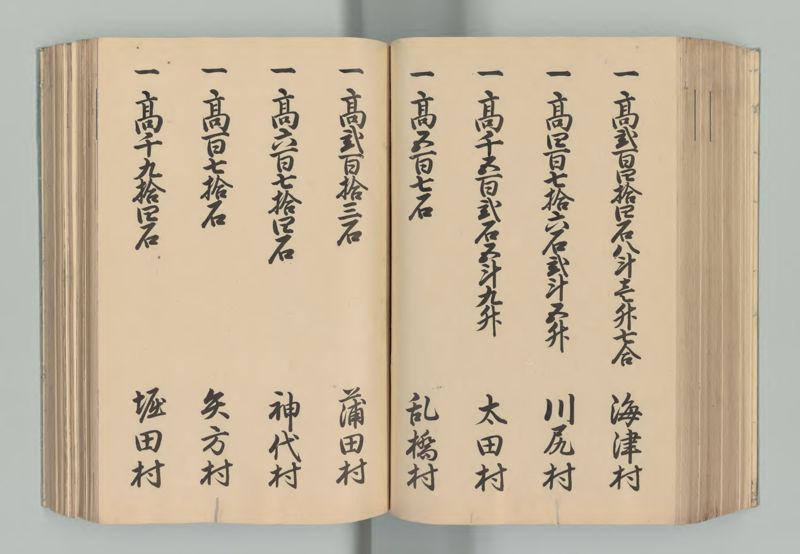 一 高弐百四拾四石八斗壱升七合 海津村
一 高四百七拾六石弐斗五升 川尻村
一 高千五百弐石五斗九升 太田村
一 高五百七石 乱橋村
一 高弐百拾三石 蒲田村
一 高六百七拾四石 神代村
一 高百七拾石 矢方村
一 高千九拾四石 堀田村